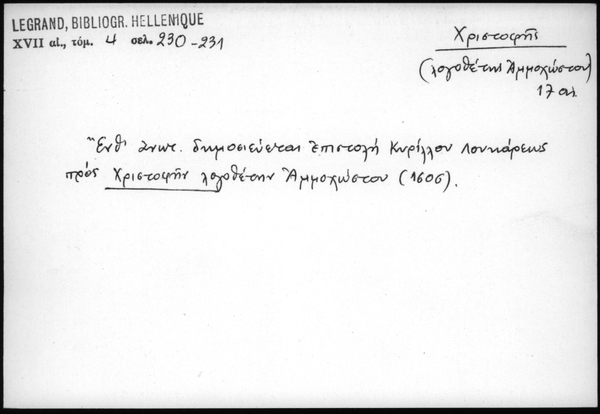 LEGRAND, BIBLIOGR. HELLENIQUE
XVII αἰ., τόμ. 4 σελ. 230-231
Χριστοφῆς
(λογοθέτης Ἀμμοχώστου)
17 αι.
Ἔνθ' ἀνωτ. δημοσιεύεται ἐπιστολή Κυρίλλου Λουκάρεως
πρός Χριστοφῆν λογοθέτην Ἀμμοχώστου (1606).